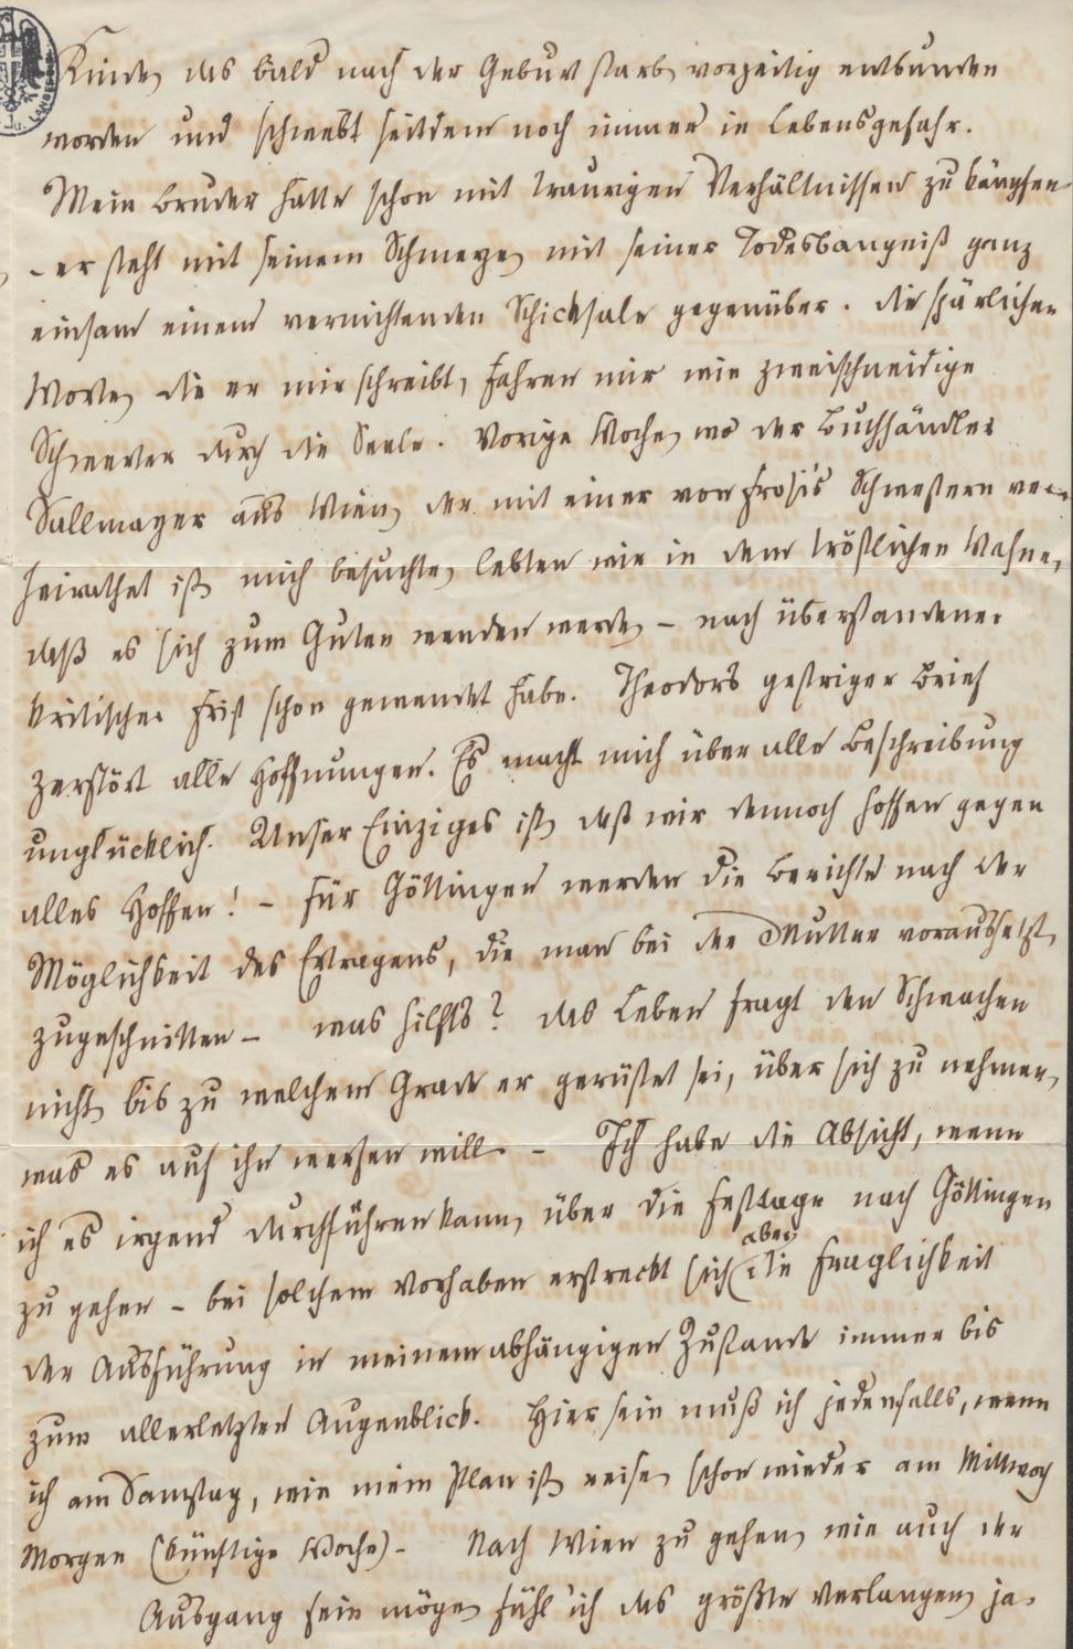 Kinde, das bald nach der Geburt starb, vorzeitig entbunden
worden und schwebt seitdem noch immer in Lebensgefahr.
Mein Bruder hatte schon mit traurigen Verhältnissen zu kämpfen
– er steht mit seinem Schmerze, mit seiner Todesbangniß ganz
einsam einem vernichtenden Schicksale gegenüber. Die spärlichen
Worte, die er mir schreibt, fahren mir wie zweischneidige
Schwerter durch die Seele. Vorige Woche, wo der Buchhändler
Sallmayer aus Wien, der mit einer von Frosis Schwestern ver-
heirathet ist, mich besuchte, lebten wir in dem tröstlichen Wahne,
daß es sich zum Guten wenden werde, – nach überstandener
kritischer Frist schon gewendet habe. Theodors gestriger Brief
zerstört alle Hoffnungen. Es macht mich über alle Beschreibung
unglücklich. Unser Einziges ist, daß wir dennoch hoffen gegen
alles Hoffen! – Für Göttingen werden die Berichte nach der
Möglichkeit des Ertragens, die man bei der Mutter voraussetzt,
zugeschnitten – was hilfts? das Leben fragt den Schwachen
nicht, bis zu welchem Grade er gerüstet sei, über sich zu nehmen,
was es auf ihn werfen will. – Ich habe die Absicht, wenn
ich es irgend durchführen kann, über die Festtage nach Göttingen
zu gehen – bei solchem Vorhaben erstreckt sich aber die Fraglichkeit
der Ausführung in meinem abhängigen Zustande immer bis
zum allerletzten Augenblick. Hier sein muß ich jedenfalls, wenn
ich am Samstag, wie mein Plan ist, reise, schon wieder am Mittwoch
Morgen (künftige Woche). – Nach Wien zu gehen, wie auch der
Ausgang sein möge, fühl' ich das größte Verlangen, ja,